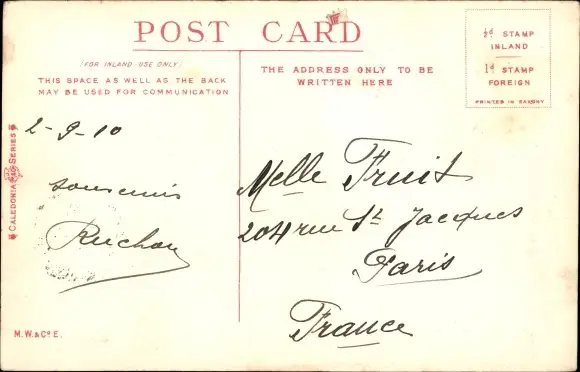 POST CARD
(FOR INLAND USE ONLY)
THIS SPACE AS WELL AS THE BACK
MAY BE USED FOR COMMUNICATION
THE ADDRESS ONLY TO BE
WRITTEN HERE
½d STAMP
INLAND
1d STAMP
FOREIGN
PRINTED IN SAXONY
CALEDONIA SERIES
2-9-10
souvenir
Melle Fruit
204 rue St. Jacques
Paris
France
M.W. & Co E.